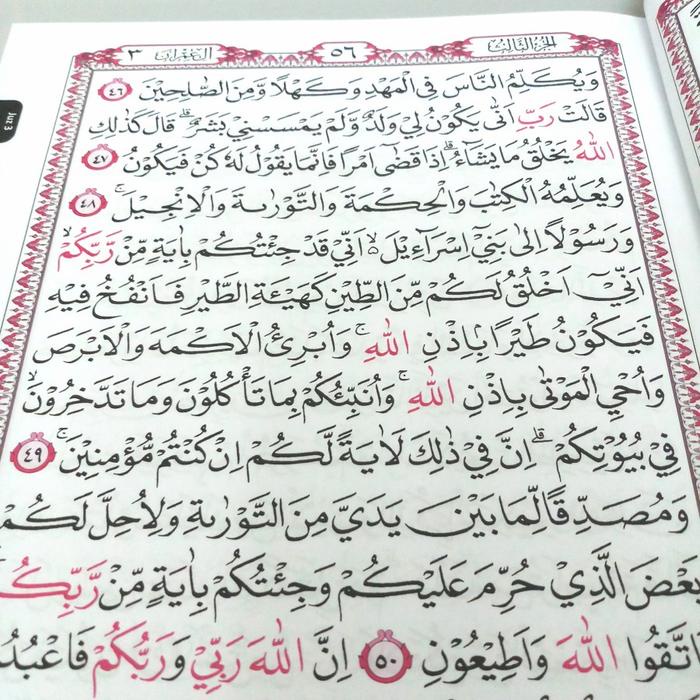 الجزء الثالث
٥٦
اٰل عمران ٣
Juz 3
وَيُكَلِّمُ النَّاسَ فِى الْمَهْدِ وَكَهْلًا وَّمِنَ الصّٰلِحِيْنَ ٤٦
قَالَتْ رَبِّ اَنّٰى يَكُوْنُ لِيْ وَلَدٌ وَّلَمْ يَمْسَسْنِيْ بَشَرٌ ۗ قَالَ كَذٰلِكِ
اللّٰهُ يَخْلُقُ مَا يَشَاۤءُ ۗاِذَا قَضٰٓى اَمْرًا فَاِنَّمَا يَقُوْلُ لَهٗ كُنْ فَيَكُوْنُ ٤٧
وَيُعَلِّمُهُ الْكِتٰبَ وَالْحِكْمَةَ وَالتَّوْرٰىةَ وَالْاِنْجِيْلَۚ ٤٨
وَرَسُوْلًا اِلٰى بَنِيْٓ اِسْرَاۤءِيْلَ ەۙ اَنِّيْ قَدْ جِئْتُكُمْ بِاٰيَةٍ مِّنْ رَّبِّكُمْۙ
اَنِّيْٓ اَخْلُقُ لَكُمْ مِّنَ الطِّيْنِ كَهَيْـَٔةِ الطَّيْرِ فَاَنْفُخُ فِيْهِ
فَيَكُوْنُ طَيْرًاۢ بِاِذْنِ اللّٰهِ ۚ وَاُبْرِئُ الْاَكْمَهَ وَالْاَبْرَصَ
وَاُحْيِ الْمَوْتٰى بِاِذْنِ اللّٰهِ ۚ وَاُنَبِّئُكُمْ بِمَا تَأْكُلُوْنَ وَمَا تَدَّخِرُوْنَۙ
فِيْ بُيُوْتِكُمْ ۗ اِنَّ فِيْ ذٰلِكَ لَاٰيَةً لَّكُمْ اِنْ كُنْتُمْ مُّؤْمِنِيْنَۚ ٤٩
وَمُصَدِّقًا لِّمَا بَيْنَ يَدَيَّ مِنَ التَّوْرٰىةِ وَلِاُحِلَّ لَكُمْ
بَعْضَ الَّذِيْ حُرِّمَ عَلَيْكُمْ وَجِئْتُكُمْ بِاٰيَةٍ مِّنْ رَّبِّكُ
اتَّقُوا اللّٰهَ وَاَطِيْعُوْنِ ٥٠ اِنَّ اللّٰهَ رَبِّيْ وَرَبُّكُمْ فَاعْبُدُ